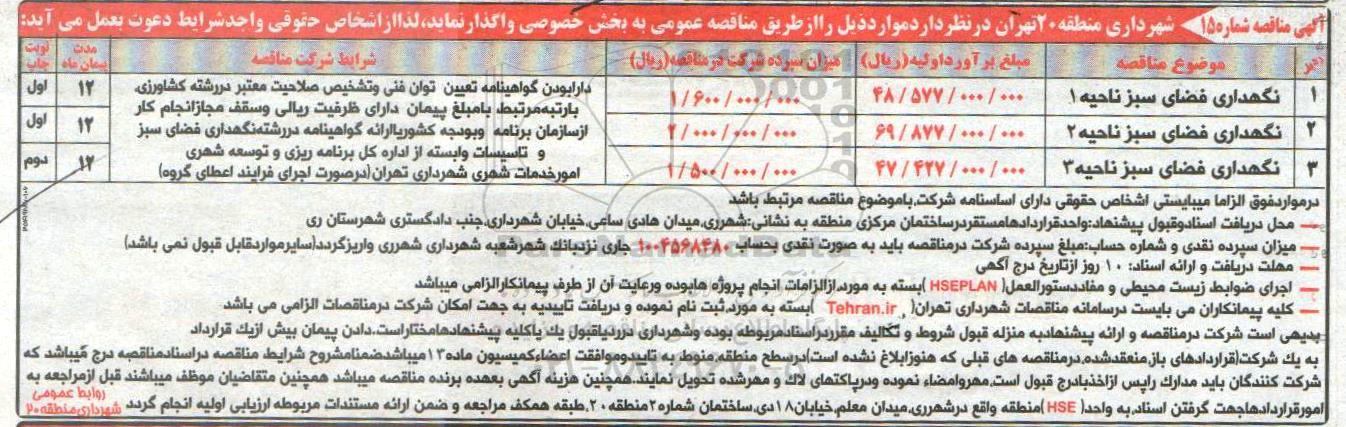 آگهی مناقصه شماره ۱۵ شهرداری منطقه ۲۰ تهران در نظر دارد موارد ذیل را از طریق مناقصه عمومی به بخش خصوصی واگذار نماید، لذا از اشخاص حقوقی واجد شرایط دعوت بعمل می آید:
موضوع مناقصه مبلغ برآورد اولیه (ریال) میزان سپرده شرکت در مناقصه (ریال) شرایط شرکت مناقصه مدت پیمان ماه نوبت چاپ
۱ نگهداری فضای سبز ناحیه ۱ ۴۸/۵۷۷/۰۰۰/۰۰۰ ۱/۶۰۰/۰۰۰/۰۰۰ ۱۲ اول
۲ نگهداری فضای سبز ناحیه ۲ ۶۹/۸۷۷/۰۰۰/۰۰۰ ۲/۰۰۰/۰۰۰/۰۰۰ ۱۲ اول
۳ نگهداری فضای سبز ناحیه ۳ ۴۷/۴۲۷/۰۰۰/۰۰۰ ۱/۵۰۰/۰۰۰/۰۰۰ ۱۲ دوم
دارا بودن گواهینامه تعیین توان فنی و تشخیص صلاحیت معتبر در رشته کشاورزی،
با رتبه مرتبط با مبلغ پیمان دارای ظرفیت ریالی و سقف مجاز انجام کار
از سازمان برنامه و بودجه کشور یا ارائه گواهینامه در رشته نگهداری فضای سبز
و تاسیسات وابسته از اداره کل برنامه ریزی و توسعه شهری
امور خدمات شهری شهرداری تهران (در صورت اجرای فرایند اعطای گروه)
در موارد فوق الزاما میبایستی اشخاص حقوقی دارای اساسنامه شرکت، با موضوع مناقصه مرتبط باشد
– محل دریافت اسناد و قبول پیشنهاد: واحد قراردادها مستقر در ساختمان مرکزی منطقه به نشانی: شهرری، میدان هادی ساعی، خیابان شهرداری، جنب دادگستری شهرستان ری
– میزان سپرده نقدی و شماره حساب: مبلغ سپرده شرکت در مناقصه باید به صورت نقدی بحساب ۱۰۰۴۵۶۸۴۸۰ جاری نزد بانك شهر شعبه شهرداری شهرری واریز گردد (سایر موارد قابل قبول نمی باشد)
– مهلت دریافت و ارائه اسناد: ۱۰ روز از تاریخ درج آگهی
– اجرای ضوابط زیست محیطی و مفاد دستورالعمل ( HSEPLAN ) بسته به مورد، از الزامات انجام پروژه ها بوده و رعایت آن از طرف پیمانکار الزامی میباشد
– کلیه پیمانکاران می بایست در سامانه مناقصات شهرداری تهران ( Tehran.ir ) بسته به مورد، ثبت نام نموده و دریافت تاییدیه به جهت امکان شرکت در مناقصات الزامی می باشد
بدیهی است شرکت در مناقصه و ارائه پیشنهاد به منزله قبول شروط و تکالیف مقرر در اسناد مربوطه بوده و شهرداری در رد یا قبول یك یا کلیه پیشنهادها مختار است، دادن پیمان بیش از یك قرارداد
به یك شرکت (قراردادهای باز، منعقد شده، در مناقصه های قبلی که هنوز ابلاغ نشده است) در سطح منطقه، منوط به تایید و موافقت اعضاء کمیسیون ماده ۱۳ میباشد ضمنا مشروح شرایط مناقصه در اسناد مناقصه درج میباشد که
شرکت کنندگان باید مدارك را پس از اخذ با درج قبول است، مهر و امضاء نموده و در پاکتهای لاك و مهر شده تحویل نمایند، همچنین هزینه آگهی بعهده برنده مناقصه میباشد همچنین متقاضیان موظف میباشند قبل از مراجعه به
امور قراردادها جهت گرفتن اسناد، به واحد ( HSE ) منطقه واقع در شهرری، میدان معلم، خیابان ۱۸ دی، ساختمان شماره ۲ منطقه ۲۰، طبقه همکف مراجعه و ضمن ارائه مستندات مربوطه ارزیابی اولیه انجام گردد
روابط عمومی
شهرداری منطقه ۲۰